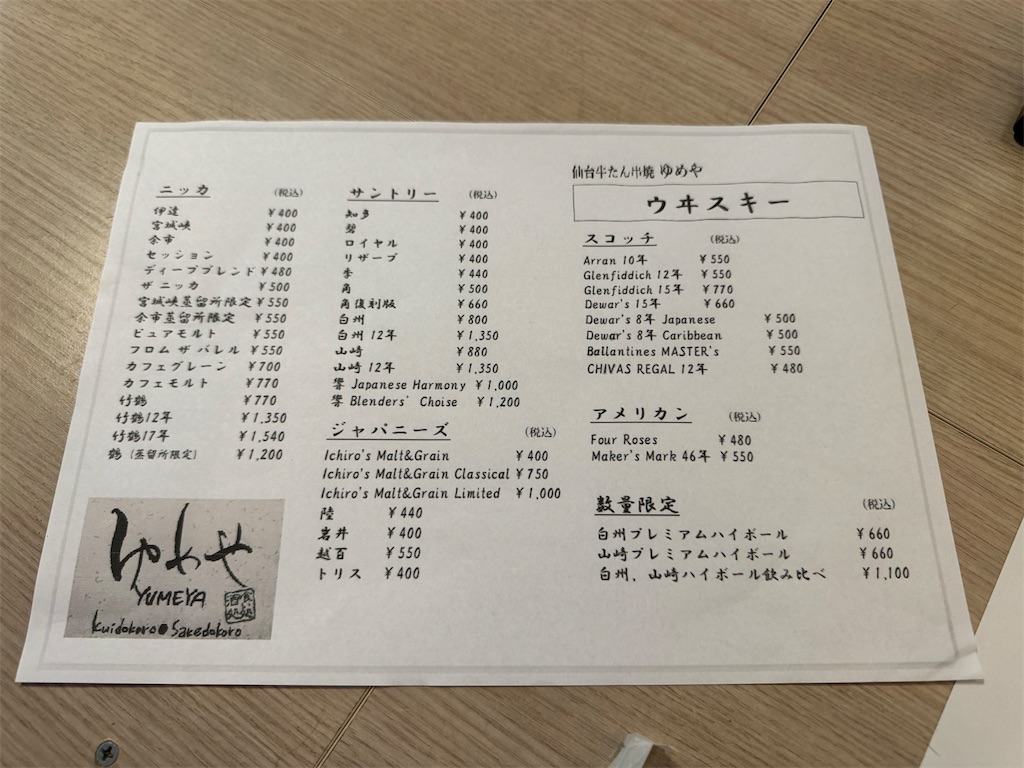 仙台牛たん串焼 ゆめや
ウヰスキー
ニッカ (税込)
伊達 ¥400
宮城峡 ¥400
余市 ¥400
セッション ¥400
ディープブレンド ¥480
ザ ニッカ ¥500
宮城峡蒸留所限定 ¥550
余市蒸留所限定 ¥550
ピュアモルト ¥550
フロム ザ バレル ¥550
カフェグレーン ¥700
カフェモルト ¥770
竹鶴 ¥770
竹鶴12年 ¥1,350
竹鶴17年 ¥1,540
鶴 (蒸留所限定) ¥1,200
サントリー (税込)
知多 ¥400
碧 ¥400
ロイヤル ¥400
リザーブ ¥400
季 ¥440
角 ¥500
角復刻版 ¥660
白州 ¥800
白州 12年 ¥1,350
山崎 ¥880
山崎 12年 ¥1,350
響 Japanese Harmony ¥1,000
響 Blenders' Choise ¥1,200
ジャパニーズ (税込)
Ichiro's Malt&Grain ¥400
Ichiro's Malt&Grain Classical ¥750
Ichiro's Malt&Grain Limited ¥1,000
陸 ¥440
岩井 ¥400
越百 ¥550
トリス ¥400
スコッチ (税込)
Arran 10年 ¥550
Glenfiddich 12年 ¥550
Glenfiddich 15年 ¥770
Dewar's 15年 ¥660
Dewar's 8年 Japanese ¥500
Dewar's 8年 Caribbean ¥500
Ballantines MASTER's ¥550
CHIVAS REGAL 12年 ¥480
アメリカン (税込)
Four Roses ¥480
Maker's Mark 46年 ¥550
数量限定 (税込)
白州プレミアムハイボール ¥660
山崎プレミアムハイボール ¥660
白州、山崎ハイボール飲み比べ ¥1,100
ゆめや
YUMEYA
食い処
酒処
Kuidokoro@Sakedokoro